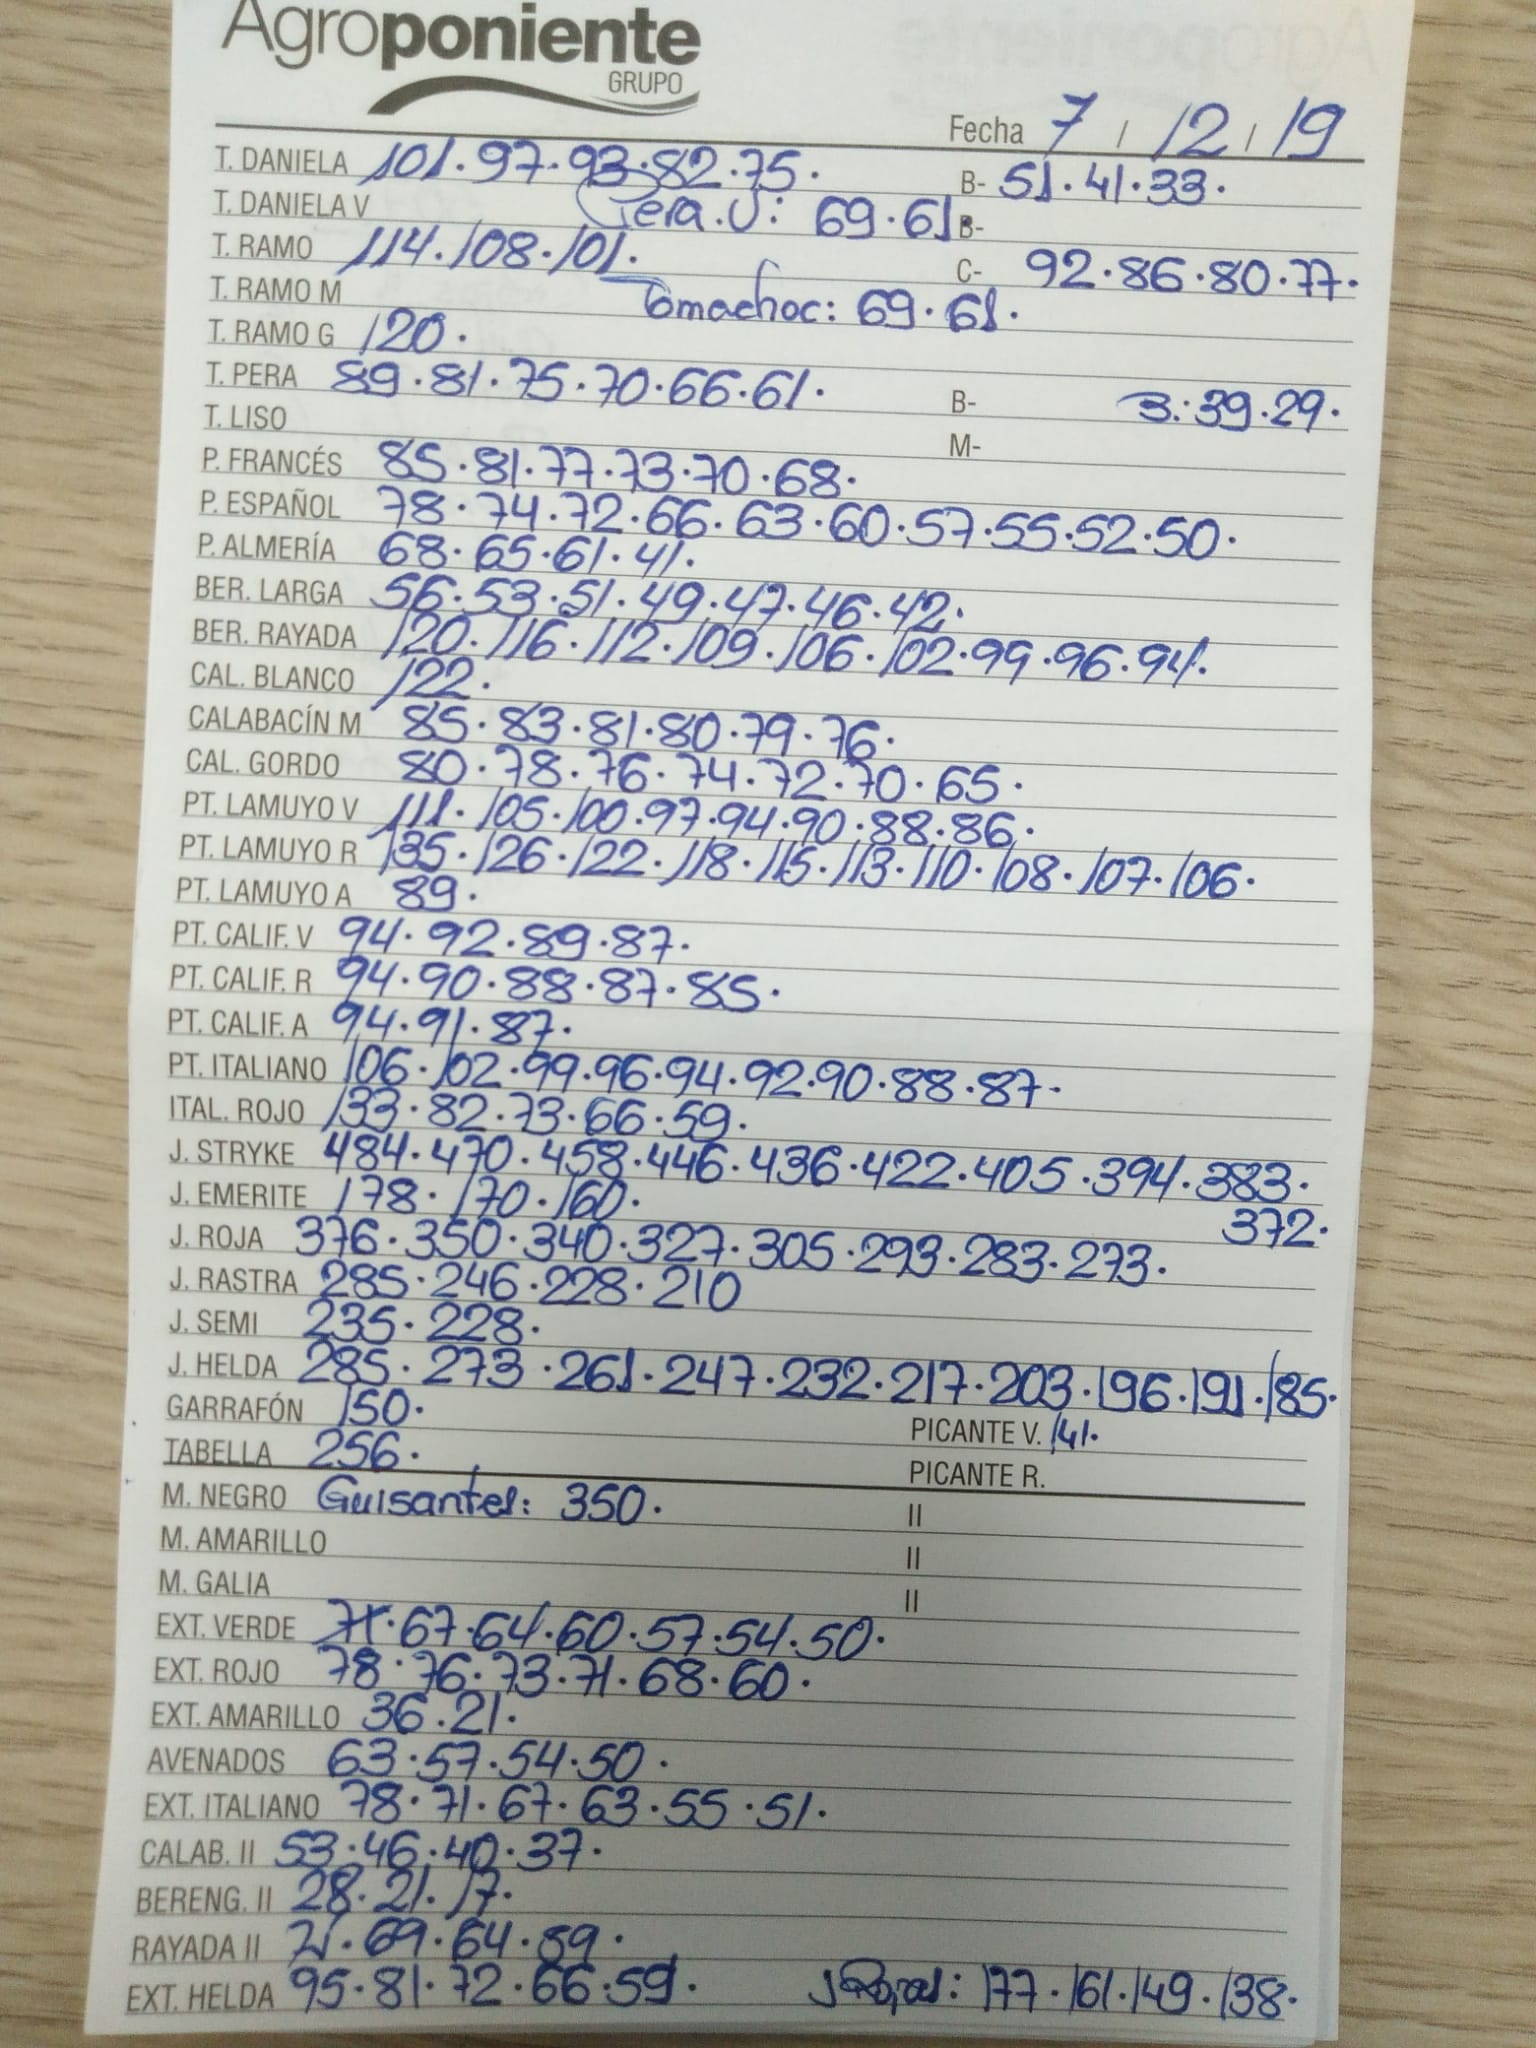 Agroponiente
GRUPO
Fecha 7 / 12 / 19
T. DANIELA 101. 97. 93. 82. 75. B- 51. 41. 33.
T. DANIELA V Pera. V: 69. 61. B-
T. RAMO 114. 108. 101. C- 92. 86. 80. 77.
T. RAMO M Tomachoc: 69. 61.
T. RAMO G 120.
T. PERA 89. 81. 75. 70. 66. 61. B- B.: 39. 29.
T. LISO M-
P. FRANCÉS 85. 81. 77. 73. 70. 68.
P. ESPAÑOL 78. 74. 72. 66. 63. 60. 57. 55. 52. 50.
P. ALMERÍA 68. 65. 61. 41.
BER. LARGA 56. 53. 51. 49. 47. 46. 42.
BER. RAYADA 120. 116. 112. 109. 106. 102. 99. 96. 94.
CAL. BLANCO 122.
CALABACÍN M 85. 83. 81. 80. 79. 76.
CAL. GORDO 80. 78. 76. 74. 72. 70. 65.
PT. LAMUYO V 111. 105. 100. 97. 94. 90. 88. 86.
PT. LAMUYO R 135. 126. 122. 118. 115. 113. 110. 108. 107. 106.
PT. LAMUYO A 89.
PT. CALIF. V 94. 92. 89. 87.
PT. CALIF. R 94. 90. 88. 87. 85.
PT. CALIF. A 94. 91. 87.
PT. ITALIANO 106. 102. 99. 96. 94. 92. 90. 88. 87.
ITAL. ROJO 133. 82. 73. 66. 59.
J. STRYKE 484. 470. 458. 446. 436. 422. 405. 394. 383.
J. EMERITE 178. 170. 160. 372.
J. ROJA 376. 350. 340. 327. 305. 293. 283. 273.
J. RASTRA 285. 246. 228. 210
J. SEMI 235. 228.
J. HELDA 285. 273. 261. 247. 232. 217. 203. 196. 191. 185.
GARRAFÓN 150. PICANTE V. 141.
TABELLA 256. PICANTE R.
M. NEGRO Guisantes: 350. II
M. AMARILLO II
M. GALIA II
EXT. VERDE 71. 67. 64. 60. 57. 54. 50.
EXT. ROJO 78. 76. 73. 71. 68. 60.
EXT. AMARILLO 36. 21.
AVENADOS 63. 57. 54. 50.
EXT. ITALIANO 78. 71. 67. 63. 55. 51.
CALAB. II 53. 46. 40. 37.
BERENG. II 28. 21. 17.
RAYADA II 71. 69. 64. 59.
EXT. HELDA 95. 81. 72. 66. 59. 177. 161. 149. 138.